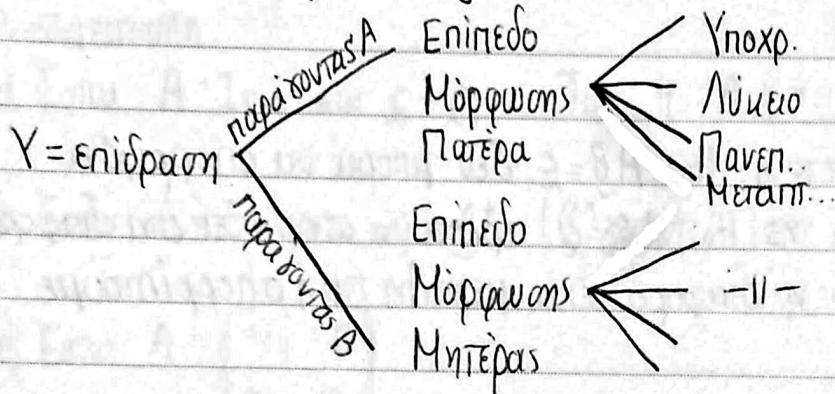 Υ = επίδραση
παράγοντας Α
Επίπεδο
Μόρφωσης
Πατέρα
Υποχρ.
Λύκειο
Πανεπ..
Μεταπτ...
παράγοντας Β
Επίπεδο
Μόρφωσης
Μητέρας
-||-